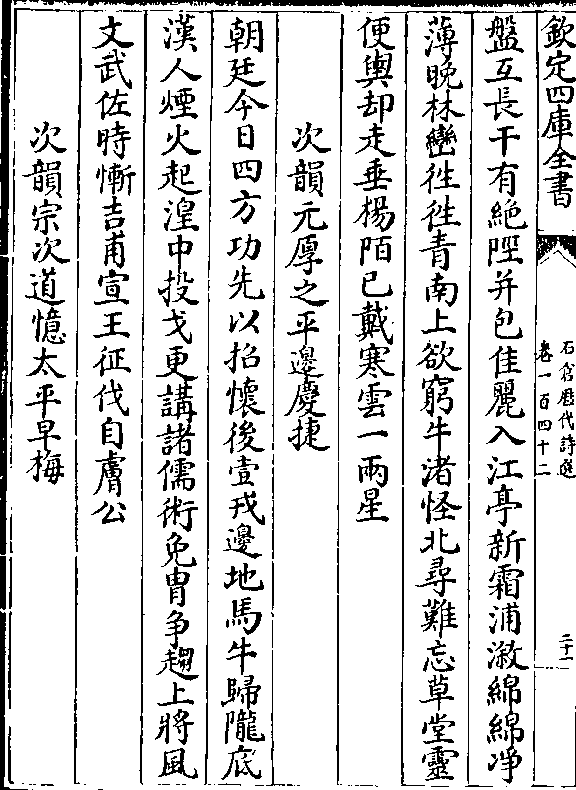 欽定四庫全書
石倉歷代詩選
卷一百四十二
二十一
盤互長干有絶陘并包佳麗入江亭新霜浦漵綿綿淨
薄晚林巒徃徃青南上欲窮牛渚怪北尋難忘草堂靈
便輿却走垂楊陌已戴寒雲一兩星
次韻元厚之平邊慶捷
朝廷今日四方功先以招懷後壹戎邊地馬牛歸隴底
漢人煙火起湟中投戈更講諸儒術免胄争趨上將風
文武佐時慚吉甫宣王征伐自膚公
次韻宗次道憶太平早梅